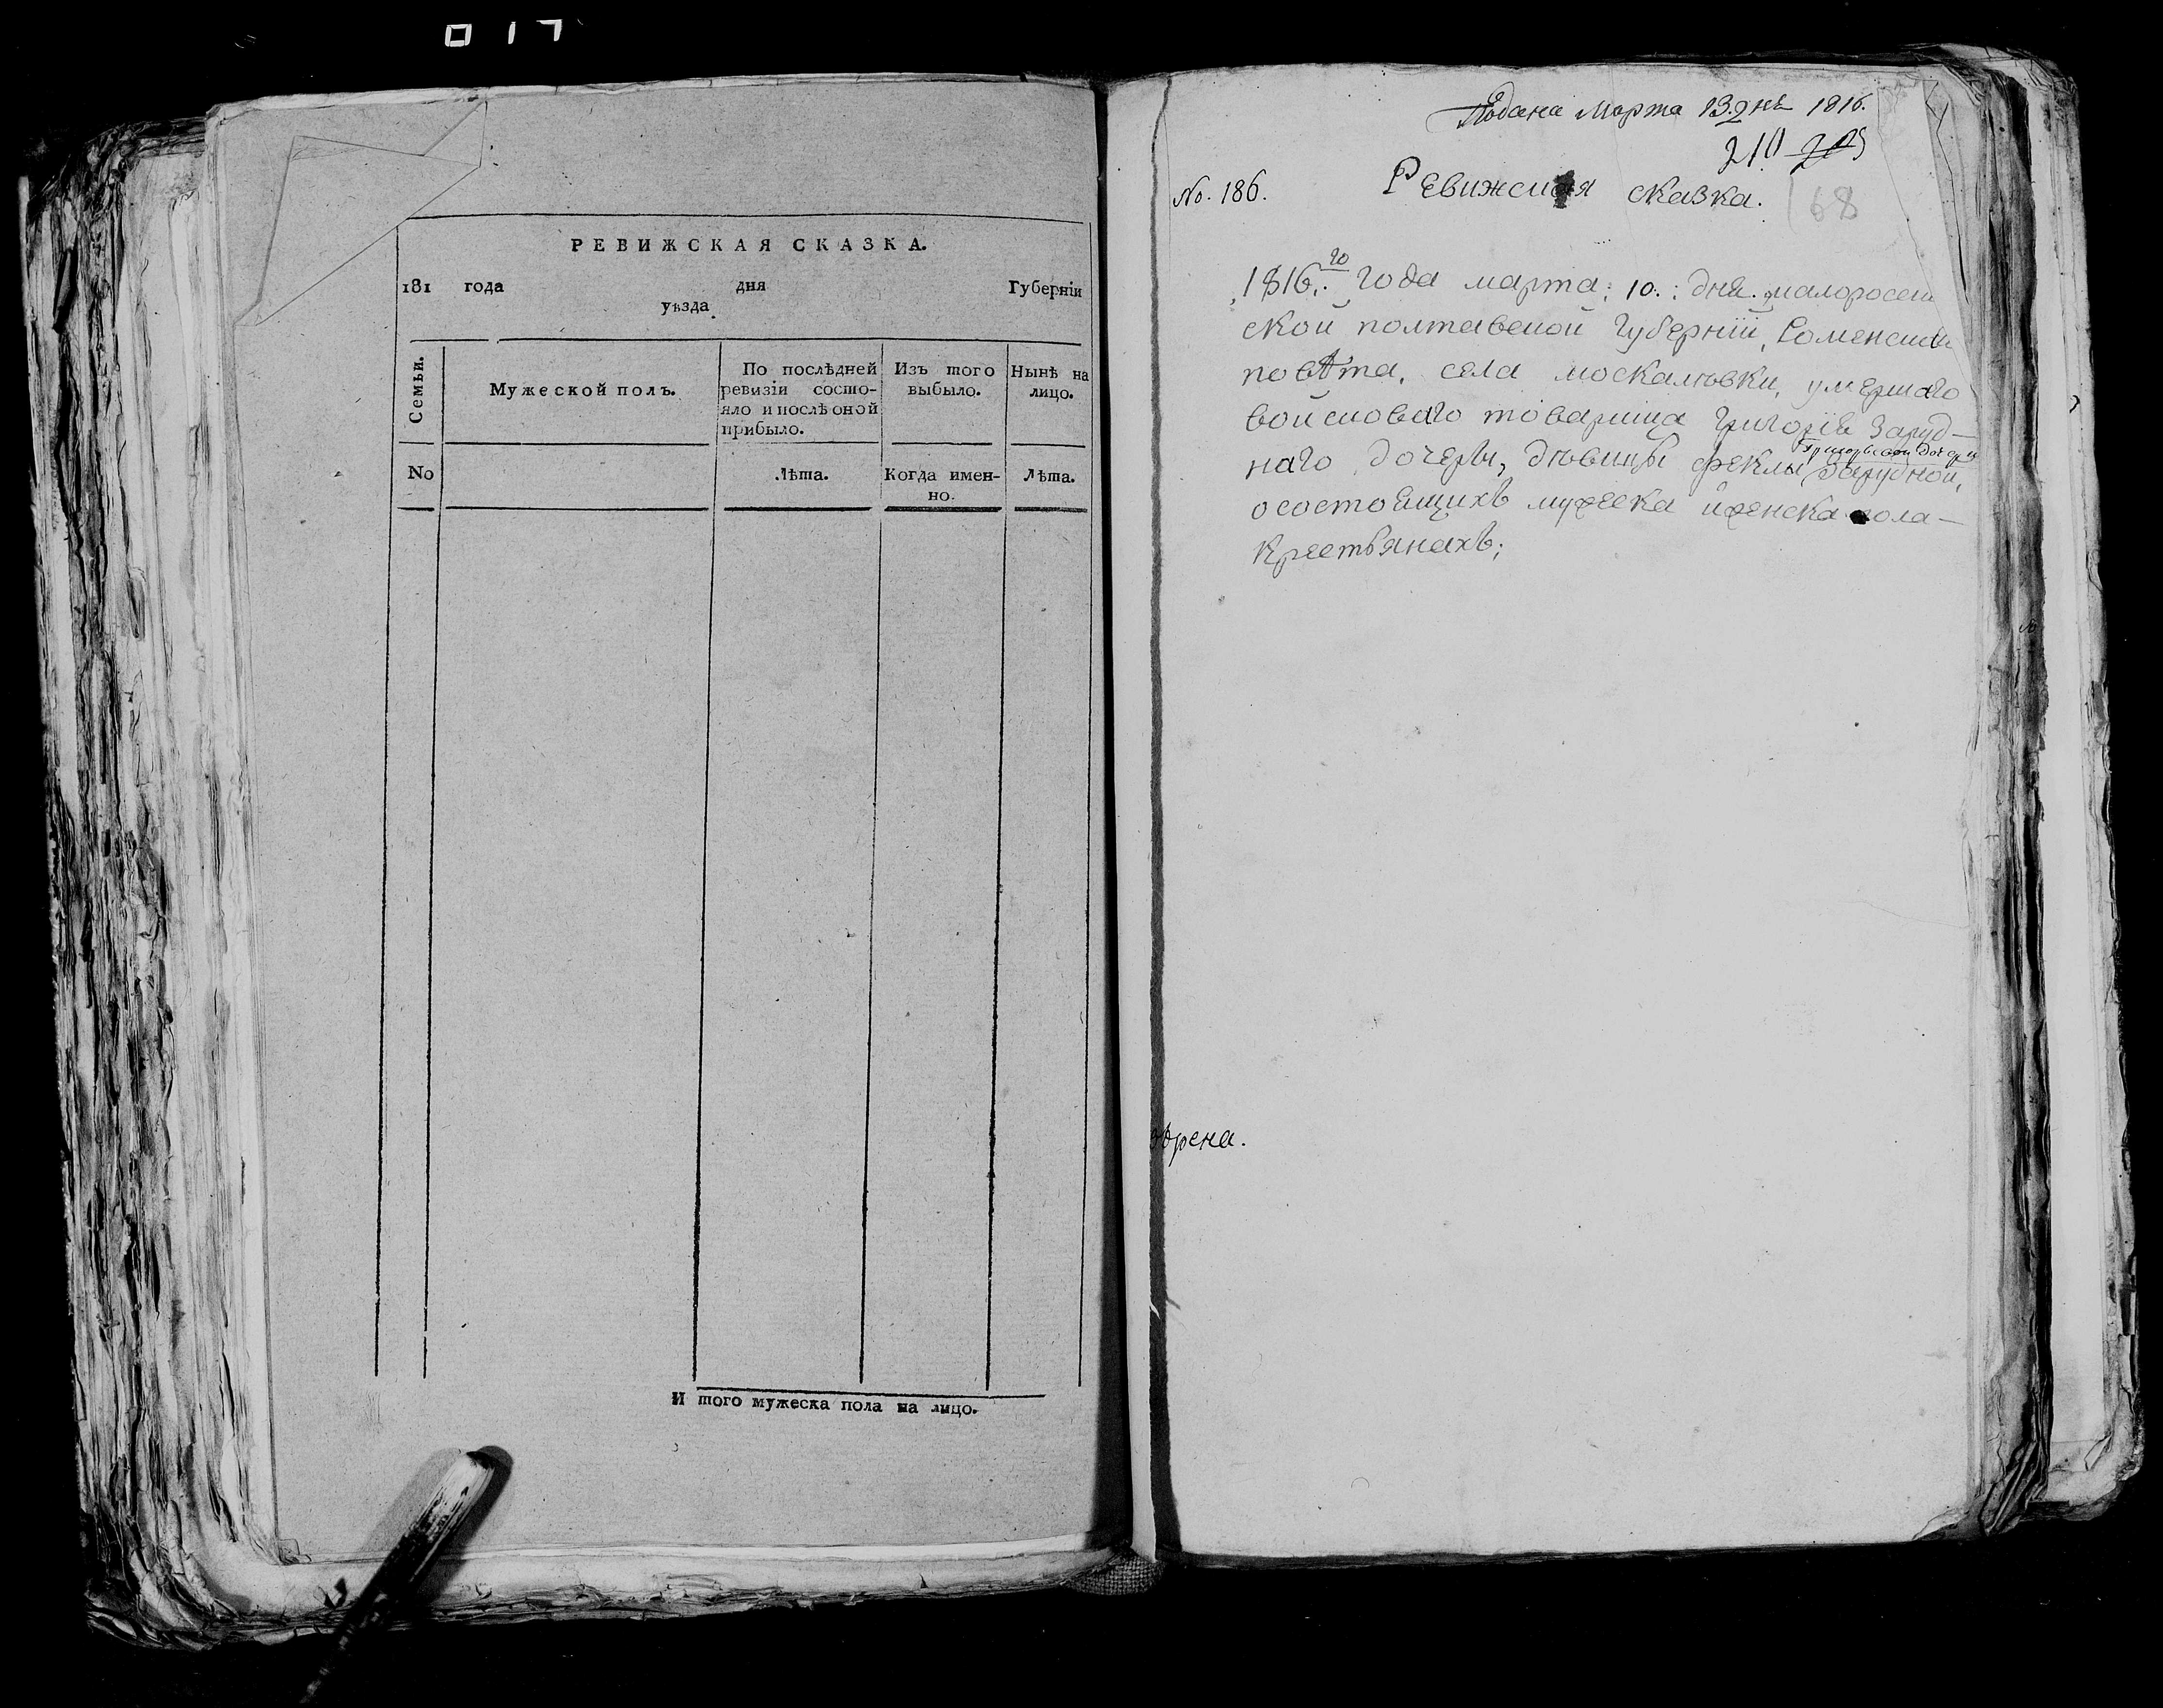 017
РЕВИЖСКАЯ СКАЗКА.
181 года дня Губерніи
уѣзда
Семьи.
Мужеской полъ.
По послѣдней
ревизіи состо-
яло и послѣ оной
прибыло.
Изъ того
выбыло.
Нынѣ на
лицо.
No
Лѣта.
Когда имен-
но.
Лѣта.
И того мужеска пола на лицо.
Подана Марта 13 дня 1816.
210 209
No. 186.
Ревижская сказка.
68
1816.го года марта: 10.: дня. малоросей
ской полтавской губерніи, Роменским
повѣта, села москалювки, умершаго
войсковаго товарища григорія Заруд-
наго дочеры, дѣвицы феклы Григорьевой дочери Зарудной,
осостоящихъ мужеска иженска пола-
крестьянахъ;
ѣрена.